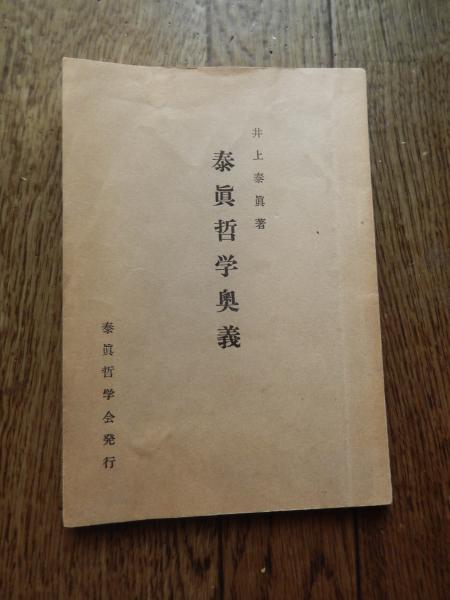 井上泰眞著
泰眞哲学奥義
泰眞哲学会発行